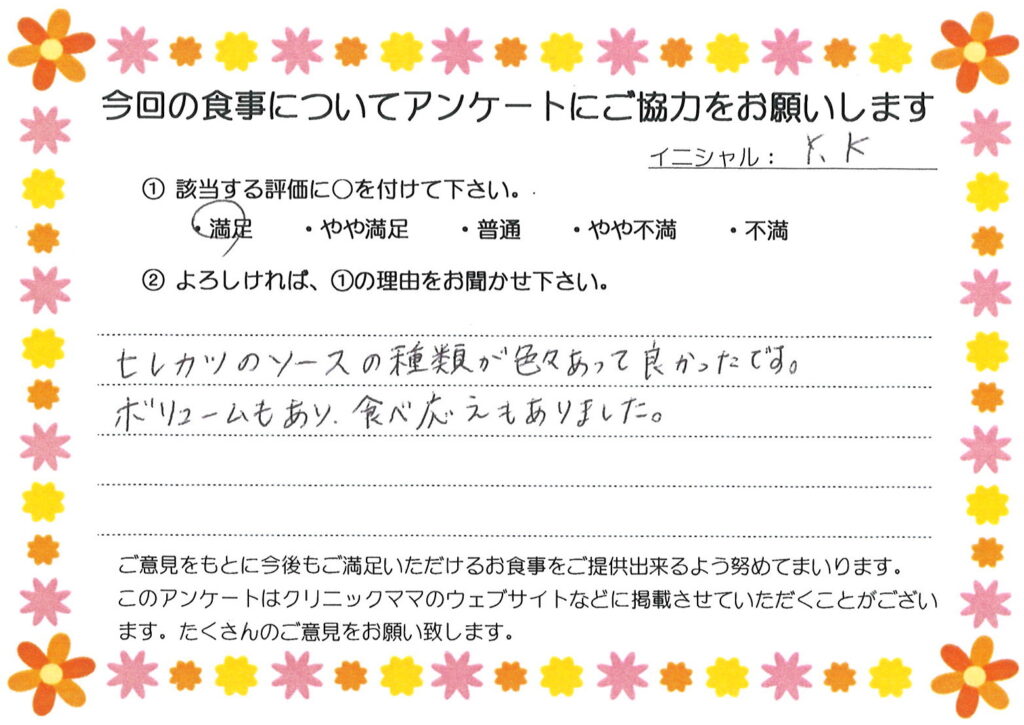 今回の食事についてアンケートにご協力をお願いします
イニシャル： Y、K
① 該当する評価に○を付けて下さい。
・満足 ・やや満足 ・普通 ・やや不満 ・不満
② よろしければ、①の理由をお聞かせ下さい。
ヒレカツのソースの種類が色々あって良かったです。
ボリュームもあり、食べ応えもありました。
ご意見をもとに今後もご満足いただけるお食事をご提供出来るよう努めてまいります。
このアンケートはクリニックママのウェブサイトなどに掲載させていただくことがござい
ます。たくさんのご意見をお願い致します。